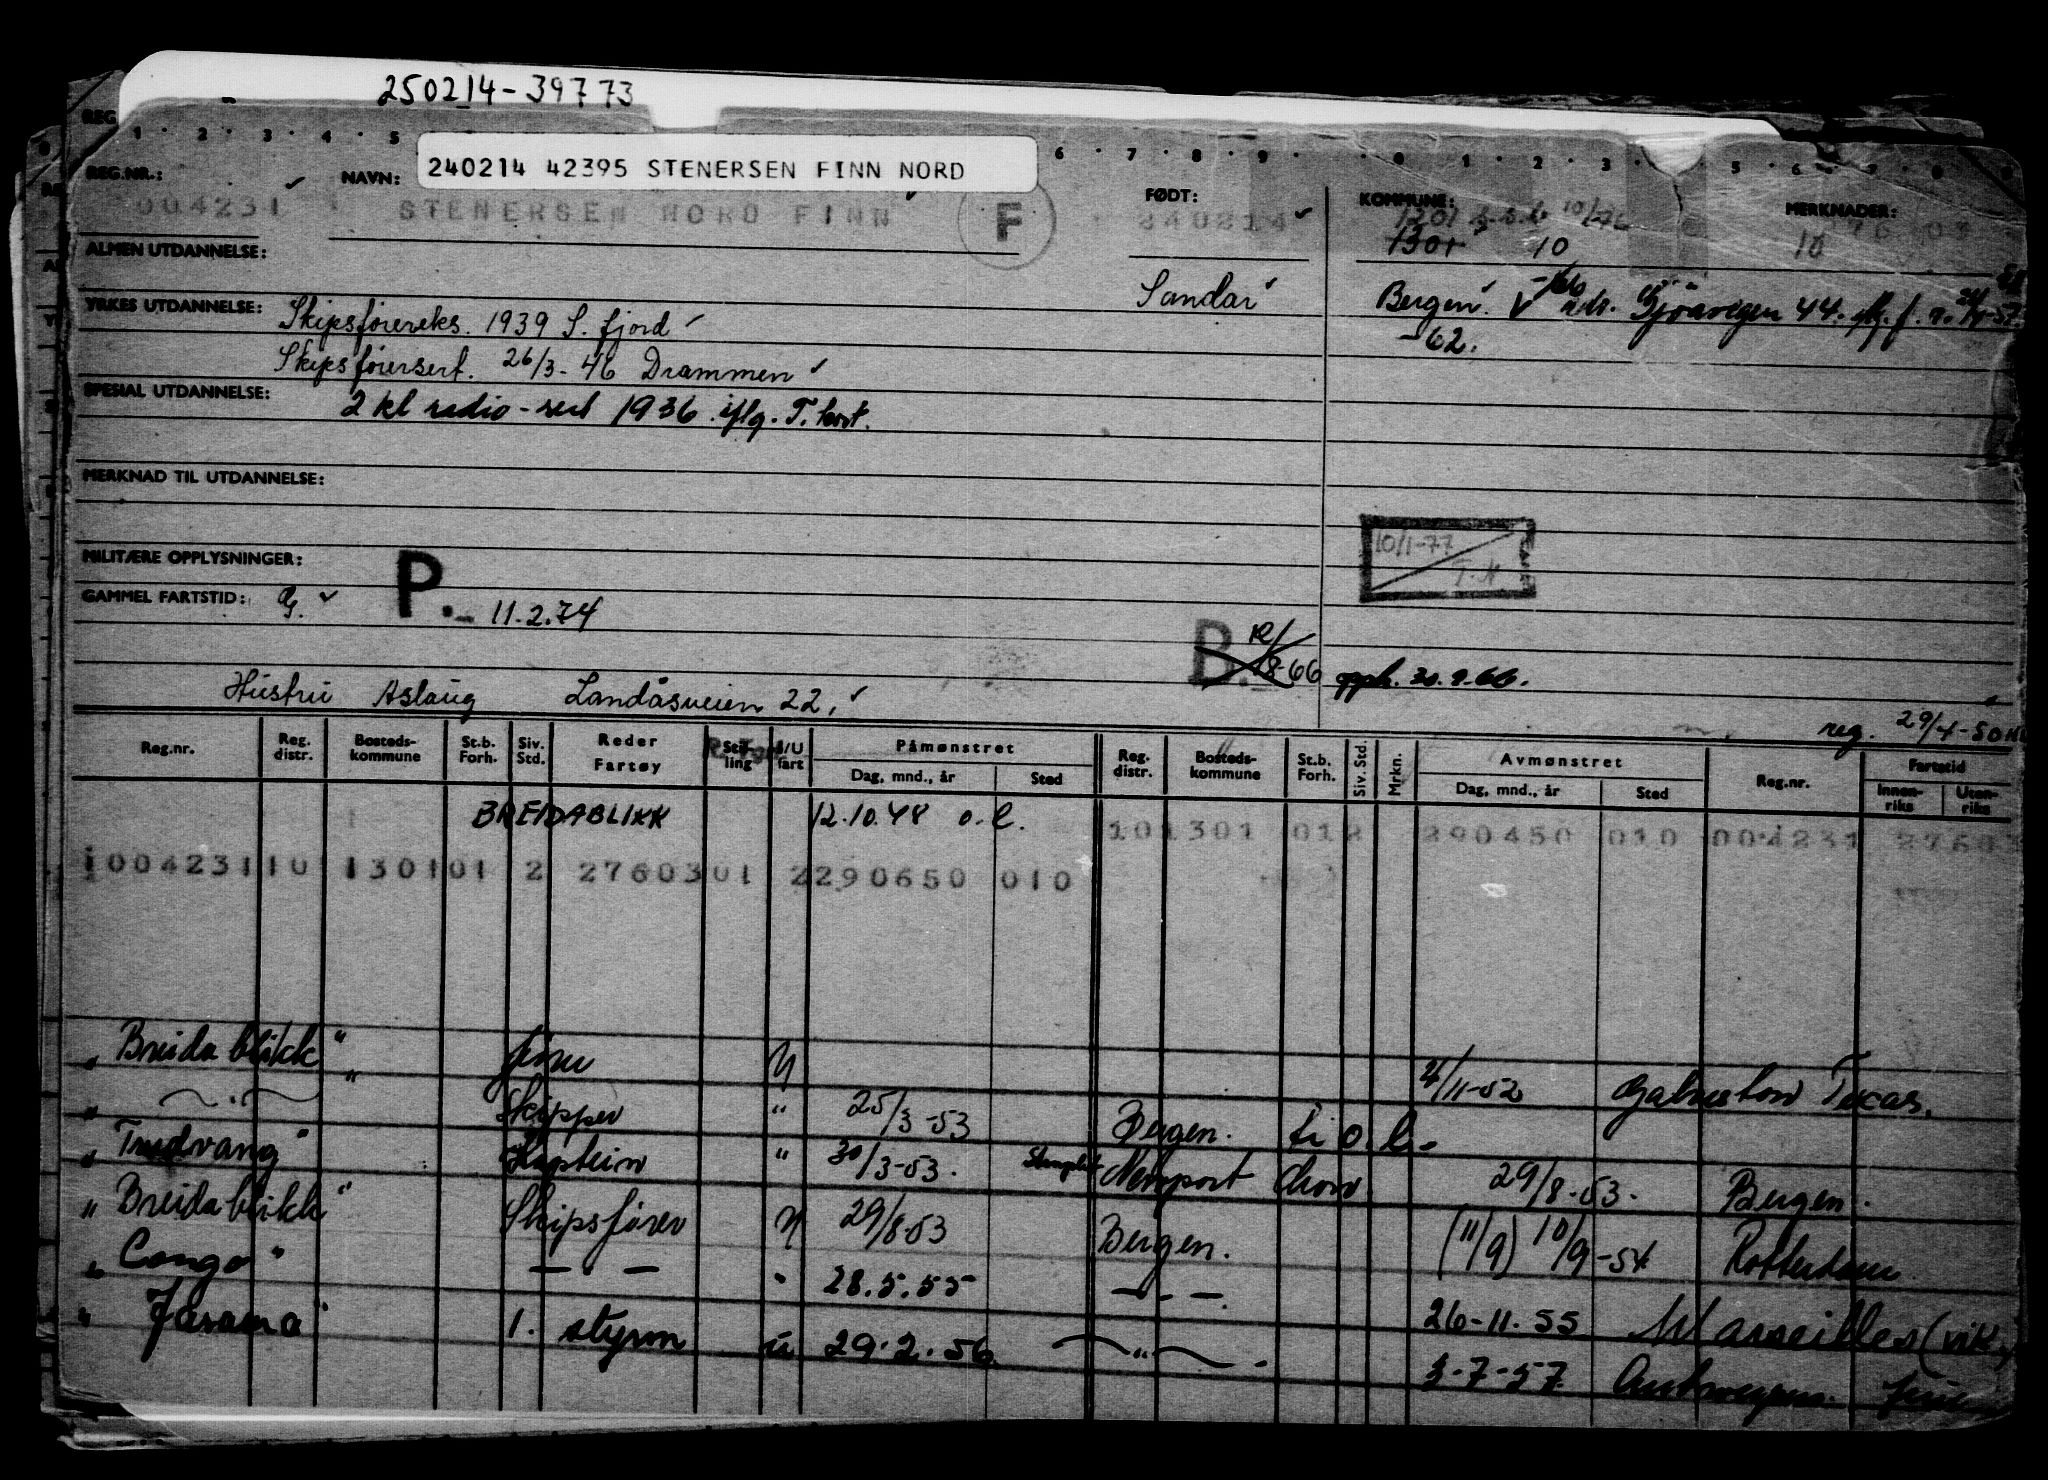 250214-39773
REG
1 · 2 · 3 · 4 · 5 6 · 7 · 8 · 9 · 0 1 2 3 5 6 7 8
240214 42395 STENERSEN FINN NORD
REG.NR.: NAVN: FØDT: KOMMUNE: MERKNADER:
004231 STENERSEN NORD FINN F 240214 1201 10/76
1301 10 10
ALMEN UTDANNELSE:
Sandar Bergen. V -66 adr. Gjøavegen 44.
-62.
YRKES UTDANNELSE: Skipsførereks. 1939 S. fjord
Skipsførersert. 26/3-46 Drammen
SPESIAL UTDANNELSE: 2 kl radio-sert 1936 iflg. T. kort.
MERKNAD TIL UTDANNELSE:
10/1-77
MILITÆRE OPPLYSNINGER:
GAMMEL FARTSTID: G. P. 11.2.74
B. 8-66 opph. 30.9.66.
Hustru Aslaug Landåsveien 22.
reg. 29/4-50
Reg.nr. Reg. distr. Bosteds-kommune St.b. Forh. Siv. Std. Reder Fartøy Stilling I/U fart Påmønstret Dag, mnd., år Sted Reg. distr. Bosteds-kommune St.b. Forh. Siv. Std. Mrkn. Avmønstret Dag, mnd., år Sted Reg.nr. Fartstid Innenriks Utenriks
BREIDABLIKK 12.10.48 o.l. 101301 012 290450 010 004231 27603
1004231 10 130101 2 2760301 2290650 010
"Breidablikk" fører U 4/11-52 Galveston Texas.
" Skipper " 25/3-53 Bergen. fi o.l.
"Trudvang" Kaptein " 30/3-53. Stemplet Newport 29/8-53. Bergen.
"Breidablikk" Skipsfører U 29/8-53 Bergen. (11/9) 10/9-54 Rotterdam
"Congo" — . — " 28.5.55 — . — 26-11-55 Marseilles (vik.)
"Jarama" 1. styrm u 29.2.56 — " — 3-7-57 Antwerpen. ferie